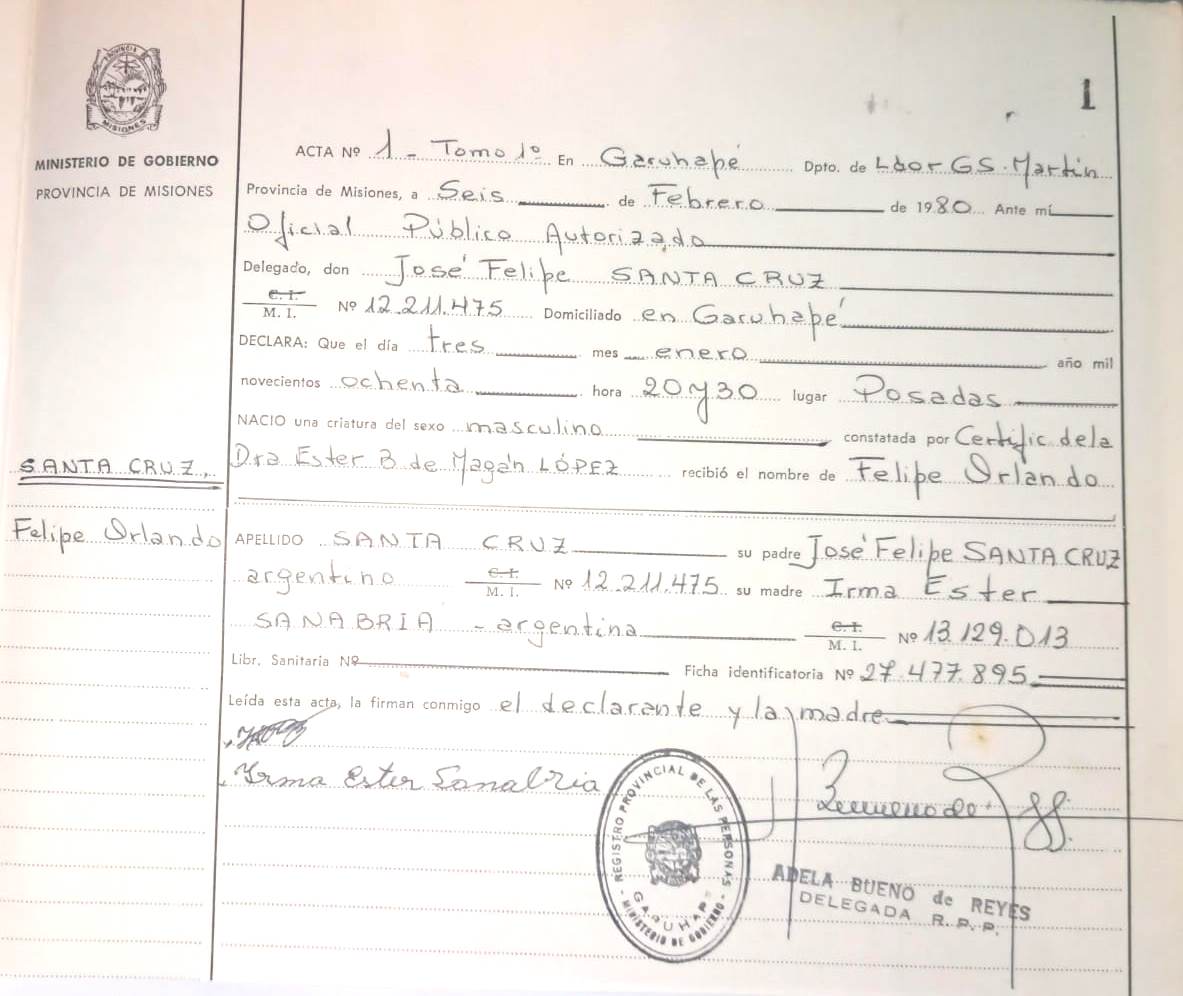 PROVINCIA
MISIONES
1
MINISTERIO DE GOBIERNO
PROVINCIA DE MISIONES
ACTA Nº 1 - Tomo 1º En Garuhapé Dpto. de Ldor G S. Martín
Provincia de Misiones, a Seis de Febrero de 1980 Ante mí
Oficial Público Autorizado
Delegado, don José Felipe SANTA CRUZ
C. I.
M. I. Nº 12.211.475 Domiciliado en Garuhapé
DECLARA: Que el día tres mes enero año mil
novecientos ochenta hora 20 y 30 lugar Posadas
NACIO una criatura del sexo masculino constatada por Certific de la
SANTA CRUZ, Dra Ester B de Magán LÓPEZ recibió el nombre de Felipe Orlando
Felipe Orlando APELLIDO SANTA CRUZ su padre José Felipe SANTA CRUZ
argentino C. I. M. I. Nº 12.211.475 su madre Irma Ester
SANABRIA - argentina C. I. M. I. Nº 13.129.013
Libr. Sanitaria Nº Ficha identificatoria Nº 27.477.895
Leída esta acta, la firman conmigo el declarante y la madre
Irma Ester Sanabria
REGISTRO PROVINCIAL DE LAS PERSONAS
GARUHAPE
MINISTERIO DE GOBIERNO
ADELA BUENO de REYES
DELEGADA R. P. P.